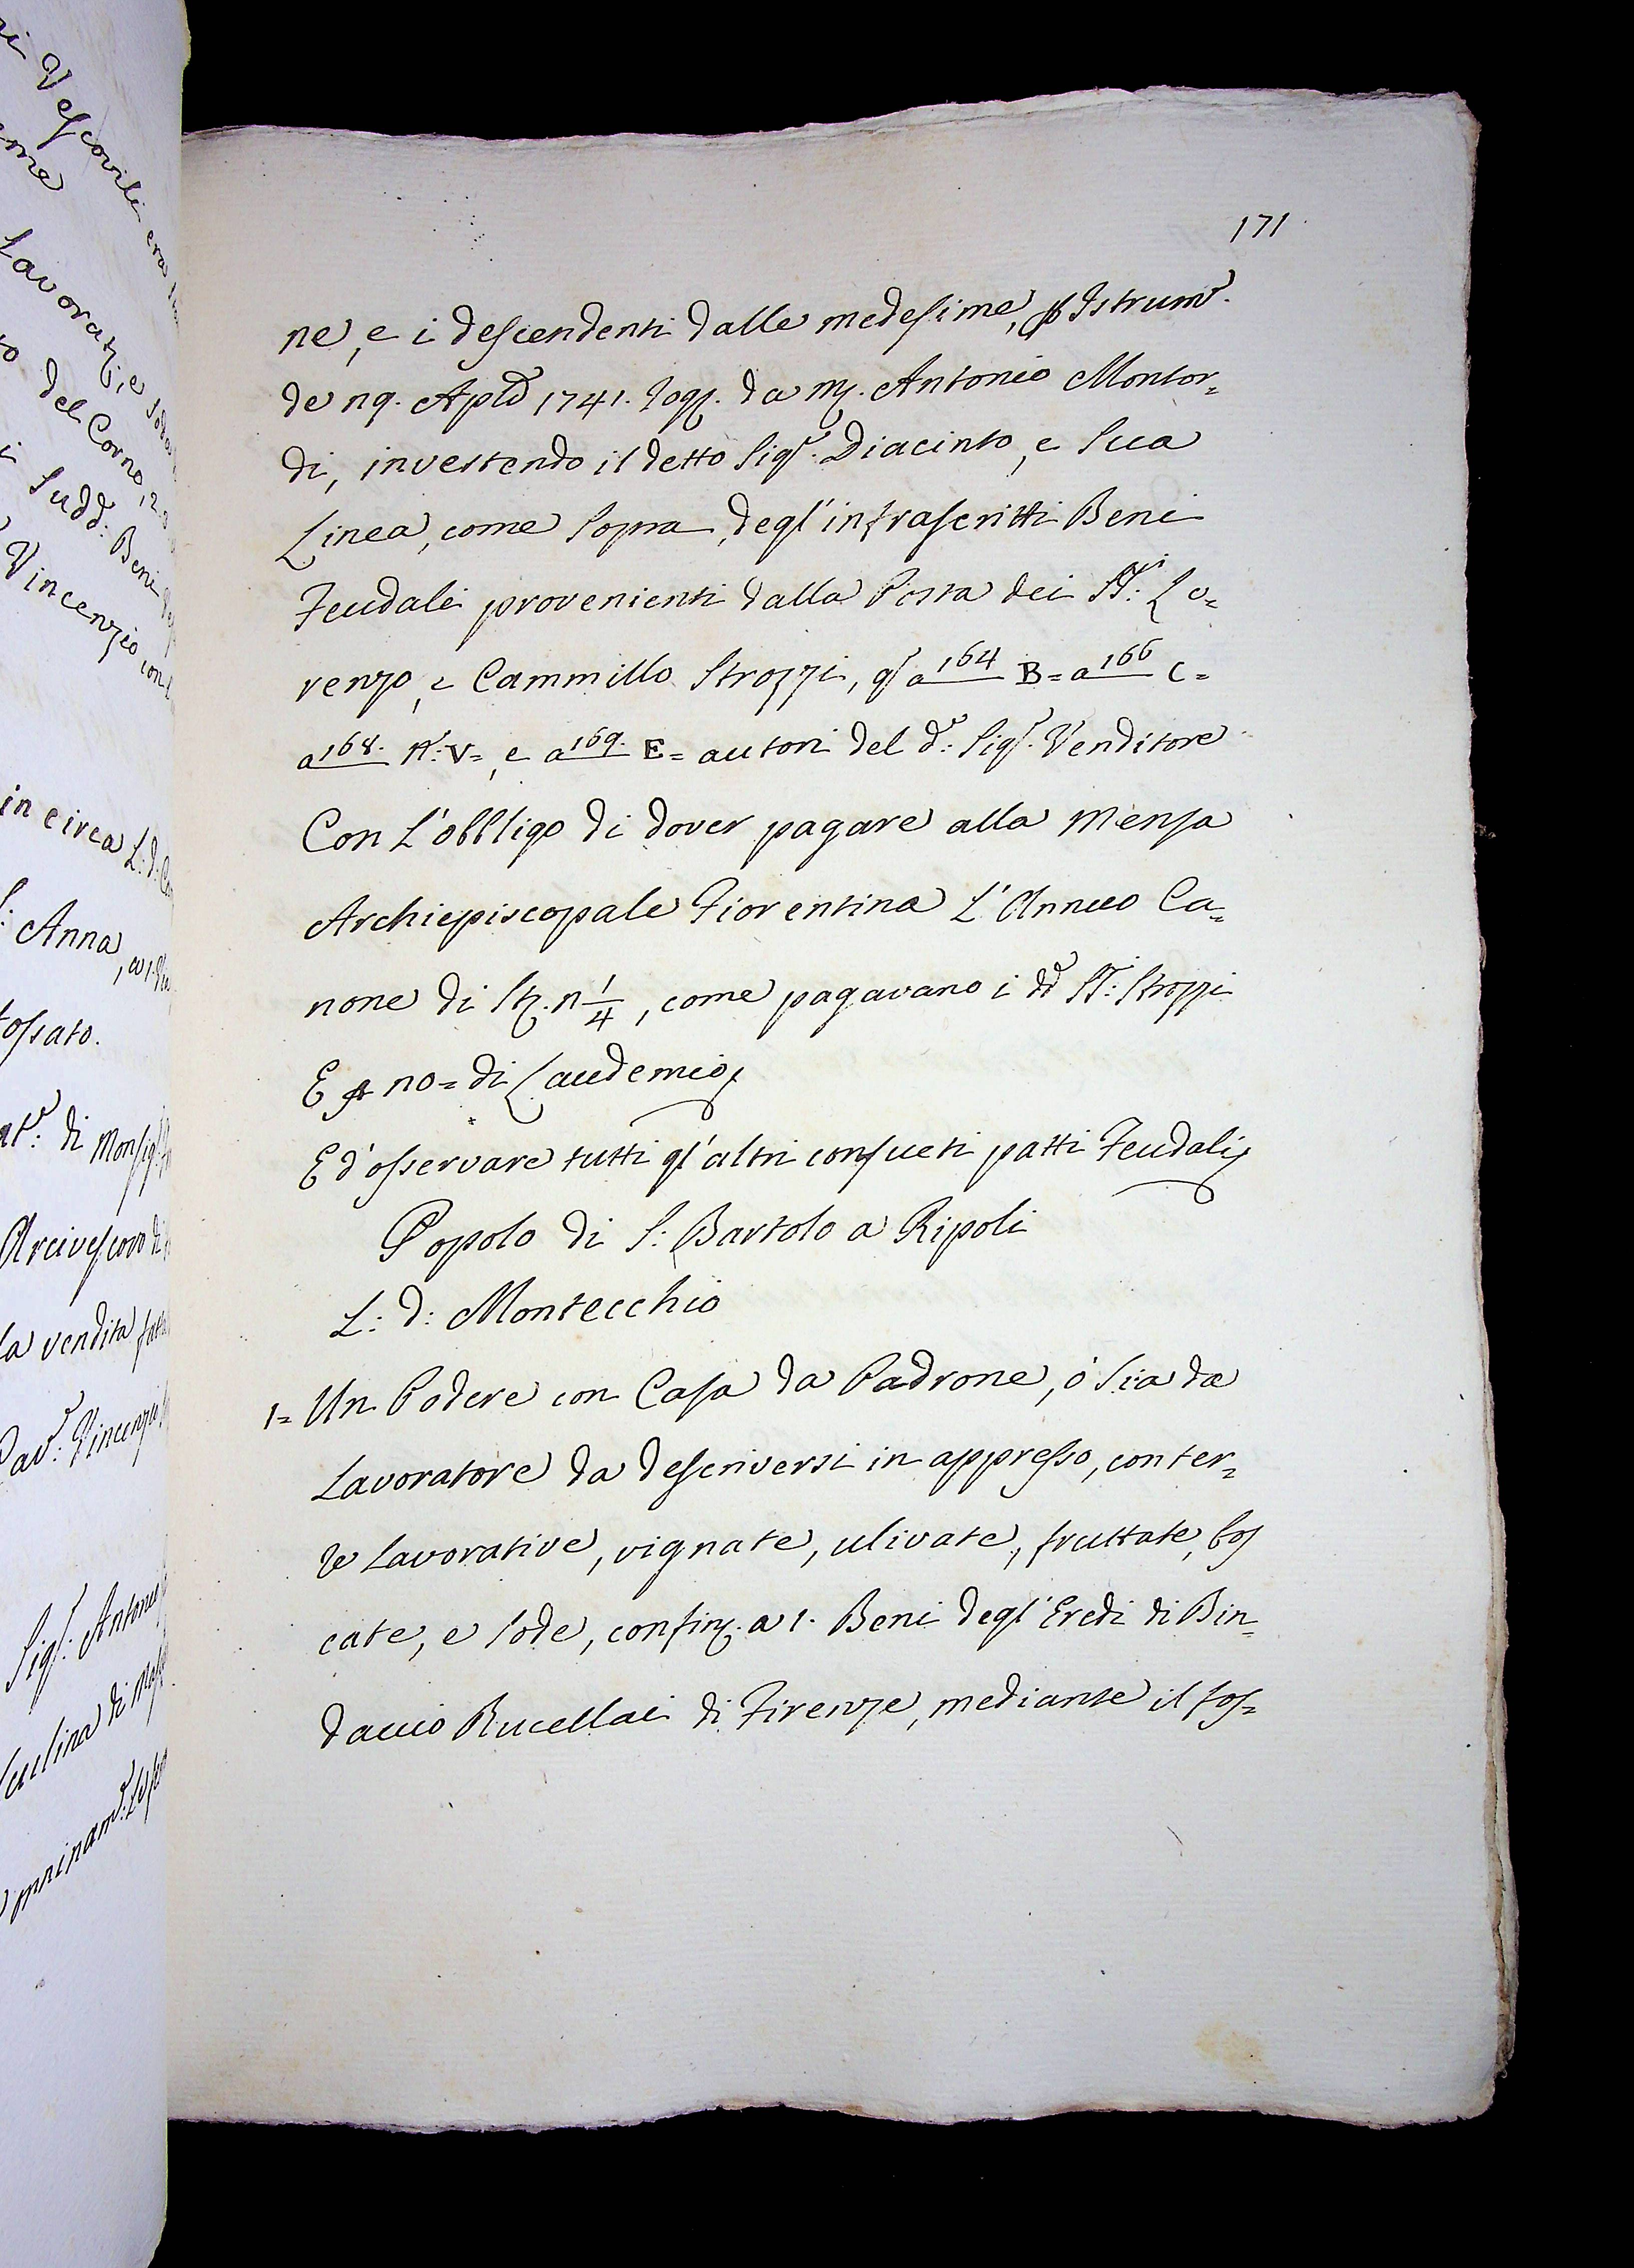 171
ne, e i descendenti dalle medesime, p Istrumo.
de n9. Aple 1741. Rog. da M. Antonio Montor=
di, investendo il detto Sigr. Diacinto, e sua
Linea, come sopra, degl'infrascritti Beni
Feudali provenienti dalla Posta dei SS:i Lo=
renzo, e Cammillo Strozzi, qs a 164 B= a 166 C=
a 168. N: V=, e a 169. E= autori del do: Sigr. Venditore
Con L'obbligo di dover pagare alla Mensa
Archiepiscopale Fiorentina L'Annuo Ca=
none di St. n 1/4, come pagavano i dd SS:i Strozzi
E p no= di Laudemio
E d'osservare tutti gl'altri consueti patti Feudali
Popolo di S: Bartolo a Ripoli
L: d: Montecchio
1= Un Podere con Casa da Padrone, ò sia da
Lavoratore da descriversi in appresso, con ter=
re Lavorative, vignate, ulivate, fruttate, bos
cate, e sode, confin. a 1. Beni degl'Eredi di Bin=
daccio Rucellai di Firenze, mediante il fos=
Vescovili
Lavorat:, e
del Corno,
Sudd: Beni
Vincenzio con
in circa L: d:
S: Anna,
fossato.
di Monsig:
Arcivescovo di
la vendita
Cavr: Vincenzio
Sigr: Antonio